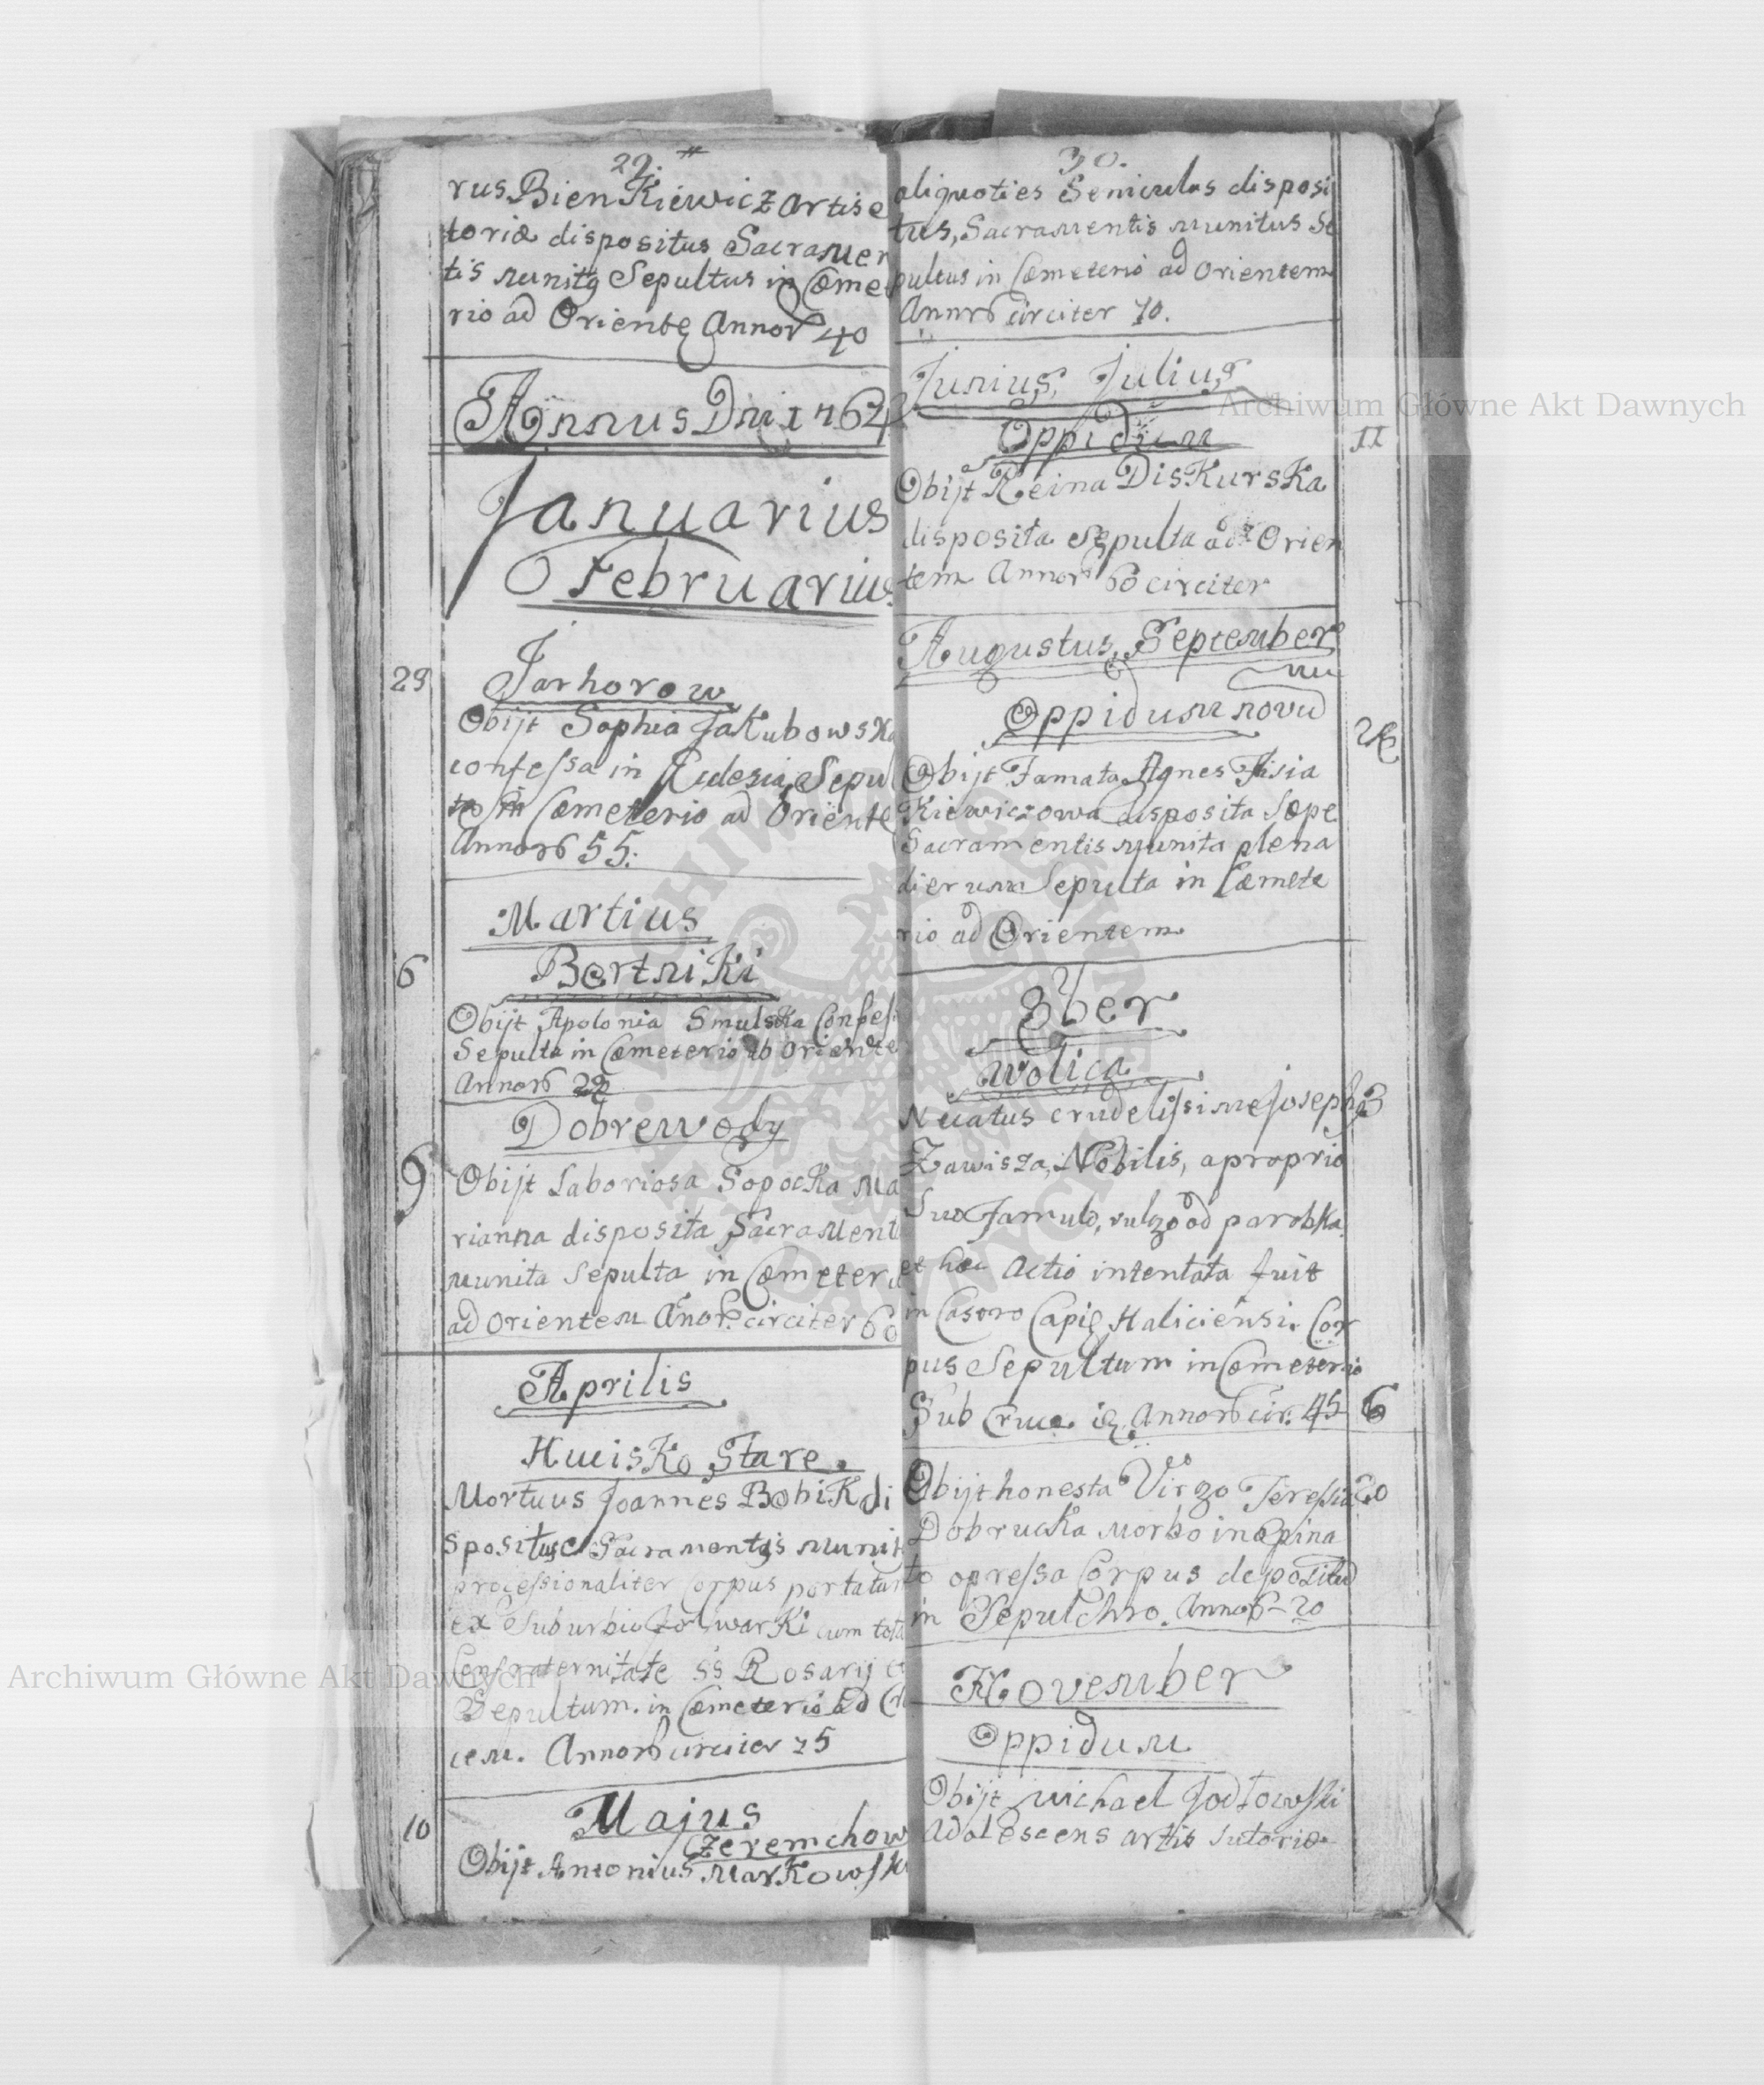 29.
rus Bienkiewicz artis e
toriæ dispositus Sacramen
tis munitq Sepultus in Cæme
rio ad Oriente Annor 40
Annus Dni 1764
Januarius
Februarius
29
Jarhorow
Obijt Sophia Jakubowska
confessa in Eclesia, Sepul
ta in Cæmeterio ad Oriente
Annor 55.
Martius
6
Bortniki
Obijt Apolonia Smulska Confess
Sepulta in Cæmeterio ab Oriente
Annor 22
Dobrewody
9
Obijt Laboriosa Sopocka Ma
rianna disposita Sacrament
munita Sepulta in Cæmeteri
ad Orientem Anor. circiter 60
Aprilis
Huisko Stare.
Mortuus Joannes Bobik di
spositus Sacramentis munit
processionaliter Corpus portatum
ex Suburbio Folwarki cum tota
Confraternitate SS Rosarij et
Sepultum. in Cæmeterio ad Cru
cem. Annor circiter 75
Majus
10
Czeremchow
Obijt Antonius Markowski
30.
aliquoties Seniculus disposi
tus, Sacramentis munitus Se
pultus in Cæmeterio ad Orientem
Annor circiter 70.
Junius, Julius
Oppidum
11
Obijt Reina Diskurska
disposita Sepulta ad Orien
tem Annor 60 circiter
Augustus, September
Oppidum novu
Obijt Famata Agnes Fisia
kiewiczowa disposita Sæpe
Sacramentis munita plena
dierum Sepulta in Cæmete
rio ad Orientem
8ber
Wolica
Necatus crudelissime Joseph 3
Zawisza, Nobilis, a proprio
Suo Famulo, vulgo od parobka
et hæc Actio intentata fuit
in Castro Capit Haliciensi. Cor
pus Sepultum in Cæmeterio
Sub Cruce Annor cir. 45 6
Obijt honesta Virgo Teressia 20
Dobrucka Morbo inopina
to opressa Corpus depositu
in Sepulchro. Annor 20
November
Oppidum
Obijt Michael Jodłowski
Adolescens artis sutoriæ
Archiwum Główne Akt Dawnych
Archiwum Główne Akt Dawnych